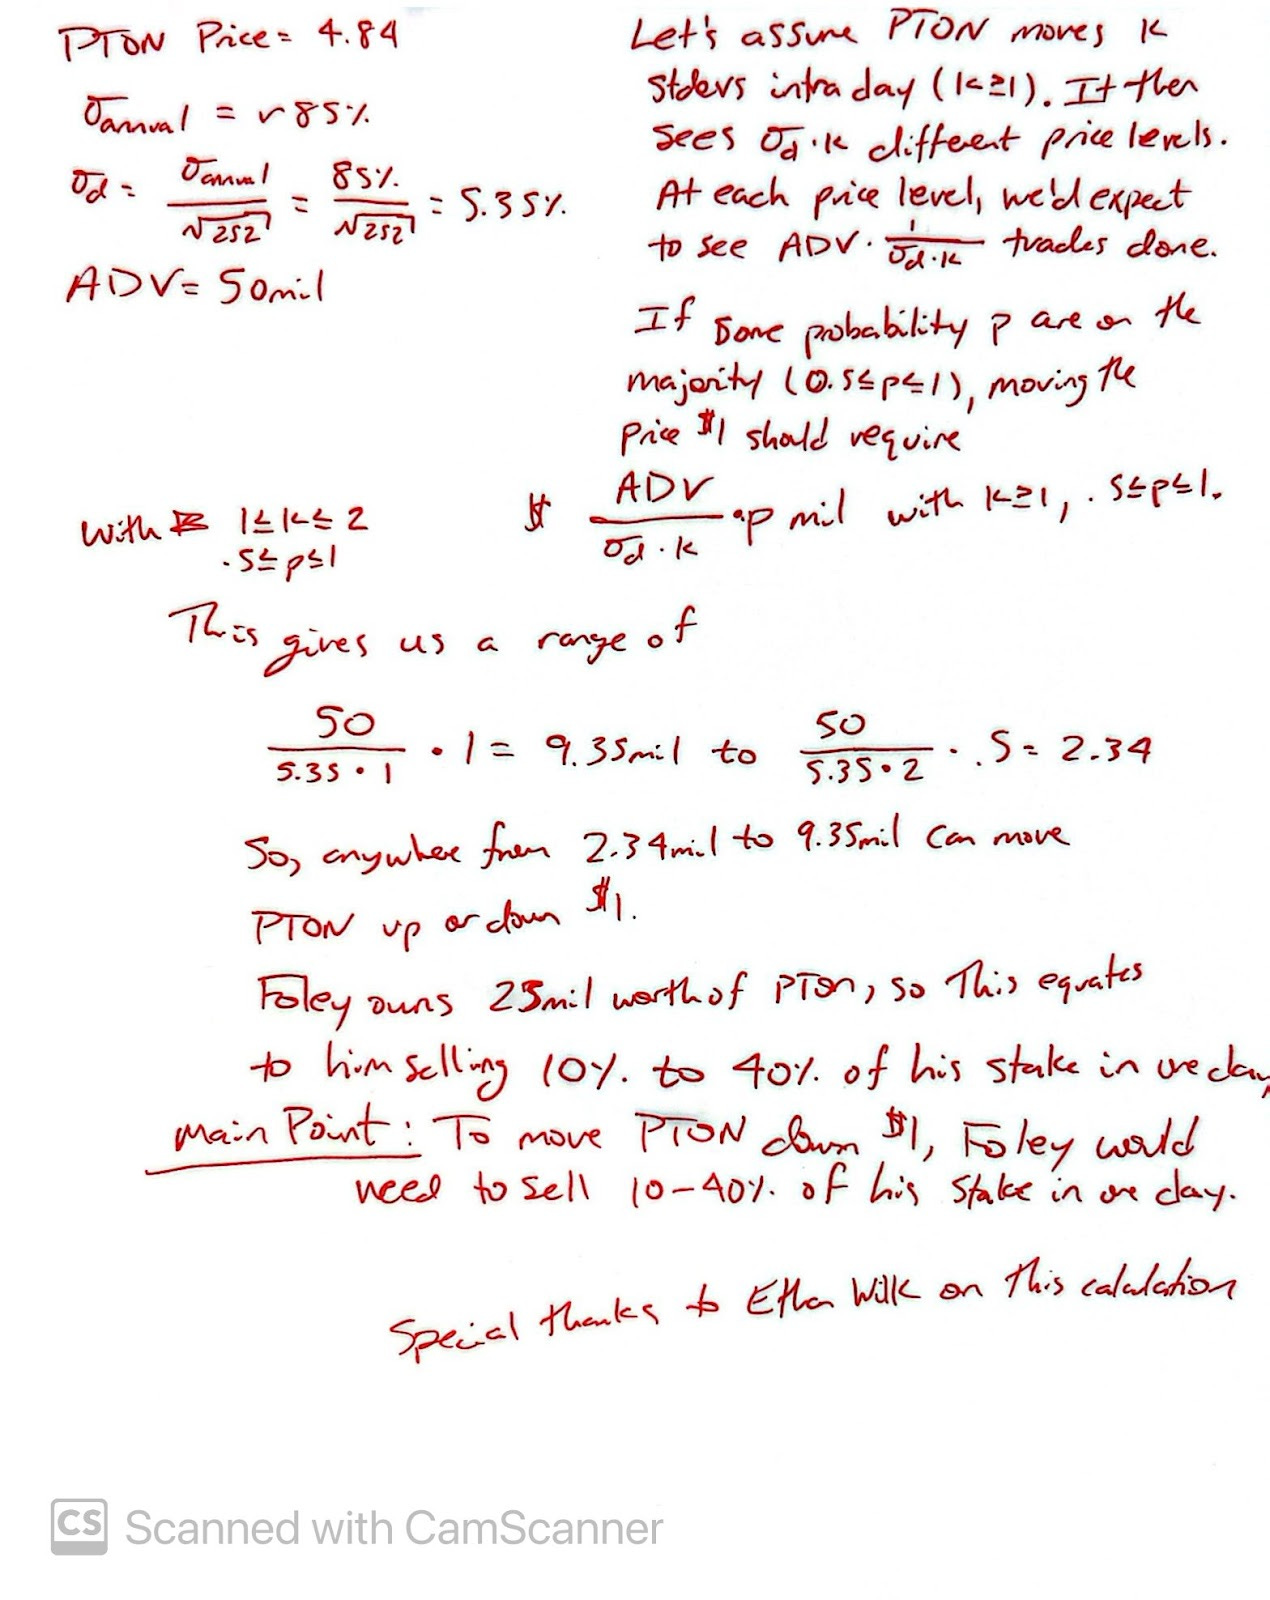 PTON Price = 4.84
σannual = ~85%
σd = σannual / √252 = 85% / √252 = 5.35%
ADV = 50mil
Let's assume PTON moves k
stdevs intraday (k≥1). It then
sees σd·k different price levels.
At each price level, we'd expect
to see ADV · 1/σd·k trades done.
If some probability p are on the
majority (0.5≤p≤1), moving the
price $1 should require
$ ADV / σd·k · p mil with k≥1, .5≤p≤1.
With 1≤k≤2
.5≤p≤1
This gives us a range of
50 / 5.35·1 · 1 = 9.35mil to 50 / 5.35·2 · .5 = 2.34
So, anywhere from 2.34mil to 9.35mil can move
PTON up or down $1.
Foley owns 25mil worth of PTON, so This equates
to him selling 10% to 40% of his stake in one day
Main Point: To move PTON down $1, Foley would
need to sell 10-40% of his stake in one day.
Special thanks to Ethan Wilk on this calculation
CS Scanned with CamScanner